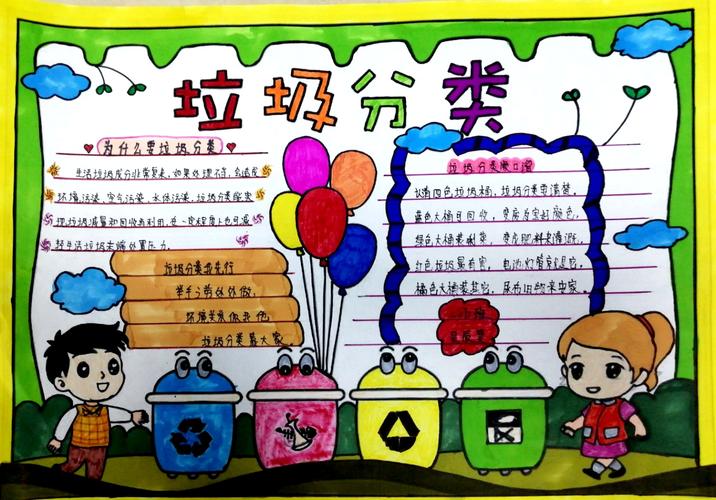 垃圾分类
为什么要垃圾分类
生活垃圾成分非常复杂,如果处理不当,会造成
环境污染,空气污染、水体污染,垃圾分类能实
现垃圾减量和回收再利用,在一定程度上也可减
轻生活垃圾末端处置压力。
垃圾分类我先行
举手之劳做做做.
环境关系你我他
垃圾分类靠大家
垃圾分类顺口溜
认清四色垃圾桶,垃圾分类要清楚。
蓝色大桶可回收,变废为宝好颜色。
绿色大桶装剩菜,变成肥料来
红色垃圾最有害,电池灯管
橘色大桶装其它,尿布旧物来安家。